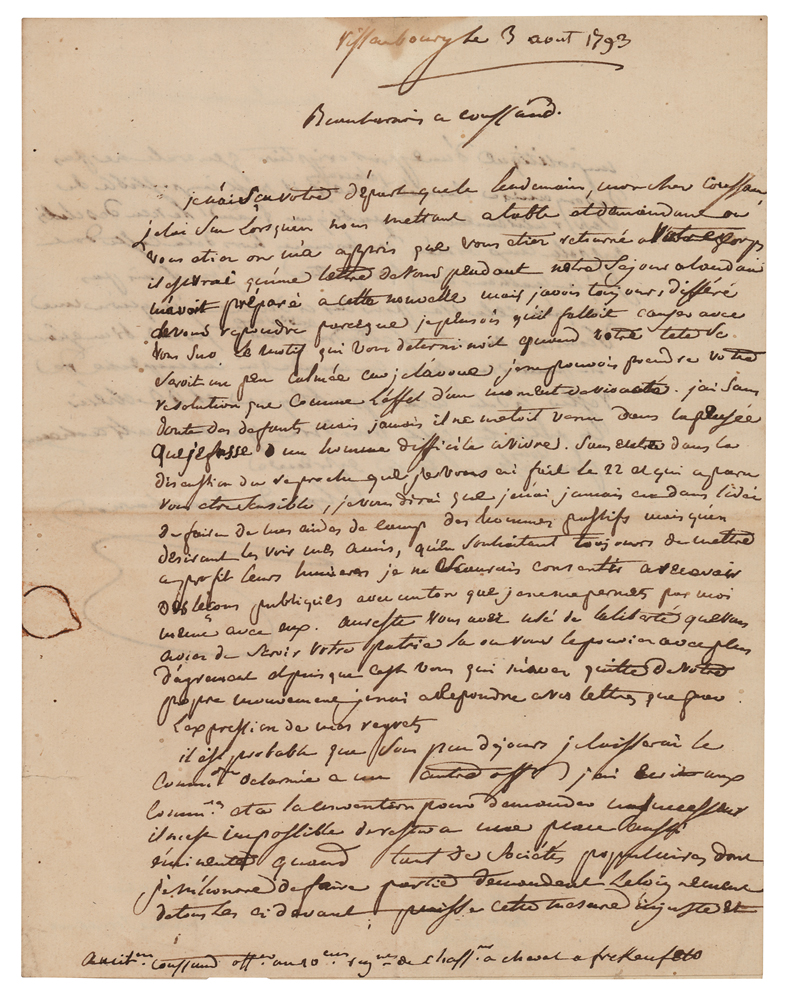 Vissembourg le 3 aout 1793
Beauharnais a Coussaud.
je n'ai su votre départ que le lendemain, mon cher Coussaud
je l'ai su lorsqu'en nous mettant a table et demandant ou
vous etiez on m'a appris que vous etiez retourné a votre corps
il est vrai qu'une lettre de vous pendant notre sejour a landau
m'avoit préparé a cette nouvelle mais j'avois toujours différé
de vous repondre parceque je pensois qu'il falloit causer avec
vous sur le motif qui vous determinoit quand votre tete se
seroit un peu calmée car je l'avoue, je ne pouvois prendre votre
resolution que comme l'effet d'un moment de vivacité. j'ai sans
doute des defauts mais jamais il ne m'etoit venu dans la pensée
que je fusse un homme difficile a vivre. Sans entrer dans la
discussion du reproche que je vous ai fait le 22 et qui a paru
vous etre sensible, je vous dirai que je n'ai jamais eu dans l'idée
de faire de mes aides de camp des hommes passifs mais qu'en
desirant les voir mes amis, qu'en souhaitant toujours de mettre
a profit leurs lumieres je ne saurais consentir a recevoir
des lecons publiques avec un ton que je ne me permets pas moi
meme avec eux. au reste vous avez usé de la liberté que vous
aviez de servir votre patrie la ou vous le pouviez avec plus
d'agrement et puisque c'est vous qui m'avez quitté de votre
propre mouvement, je n'ai a repondre a vos lettres que par
l'expression de mes regrets
il est probable que sous peu de jours je laisserai le
Comm.dt de l'armée a un autre off. j'ai ecrit aux
Comm.res et a la convention pour demander un successeur
il m'est impossible de rester a une place aussi
éminente quand tant de sociétés populaires dont
je m'honore de faire partie demandent l'eloignement
de tous les ci devant, puisse cette mesure injuste et
au cit.en Coussaud off.er au 10.eme reg.nt de chass.rs a cheval a